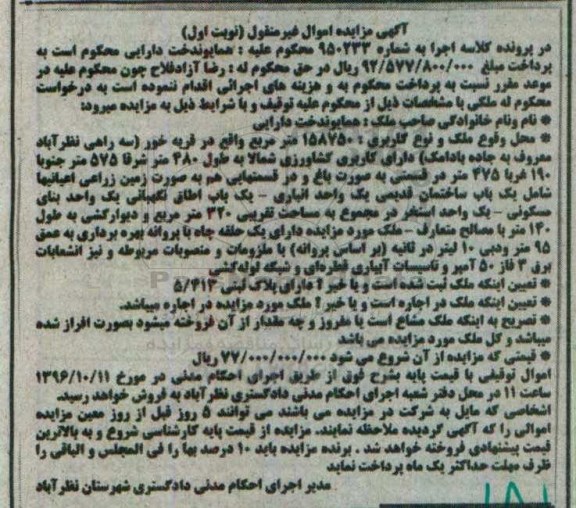 آگهی مزایده اموال غیرمنقول (نوبت اول)
در پرونده کلاسه اجرا به شماره ۹۵۰۲۳۳ محکوم علیه : همایوندخت دارایی محکوم است به
پرداخت مبلغ ۹۲/۵۷۷/۸۰۰/۰۰۰ ریال در حق محکوم له : رضا آزادفلاح چون محکوم علیه در
موعد مقرر نسبت به پرداخت محکوم به و هزینه های اجرائی اقدام ننموده است به درخواست
محکوم له ملکی با مشخصات ذیل از محکوم علیه توقیف و با شرایط ذیل به مزایده میرود:
* نام ونام خانوادگی صاحب ملک : همایوندخت دارایی
* محل وقوع ملک و نوع کاربری : ۱۵۸۷۵۰ متر مربع واقع در قریه خور (سه راهی نظرآباد
معروف به جاده بادامک) دارای کاربری کشاورزی شمالا به طول ۴۸۰ متر شرقا ۵۷۵ متر جنوبا
۱۹۰ غربا ۴۷۵ متر در قسمتی به صورت باغ و در قسمتهایی هم به صورت زمین زراعی اعیانیها
شامل یک باب ساختمان قدیمی یک واحد انباری – یک باب اطاق نگهبانی یک واحد بنای
مسکونی – یک واحد استخر در مجموع به مساحت تقریبی ۳۲۰ متر مربع و دیوارکشی به طول
۱۴۰ متر با مصالح متعارف – ملک مورد مزایده دارای یک حلقه چاه با پروانه بهره برداری به عمق
۹۵ متر ودبی ۱۰ لیتر در ثانیه (بر اساس پروانه) با ملزومات و منصوبات مربوطه و نیز انشعابات
برق ۳ فاز ۵۰ آمپر و تاسیسات آبیاری قطره‌ای و شبکه لوله‌کشی
* تعیین اینکه ملک ثبت شده است و یا خیر ؟ دارای پلاک ثبتی ۵/۴۱۳
* تعیین اینکه ملک در اجاره است و یا خیر ؟ ملک مورد مزایده در اجاره میباشد.
* تصریح به اینکه ملک مشاع است یا مفروز و چه مقدار از آن فروخته میشود بصورت افراز شده
میباشد و کل ملک مورد مزایده می باشد
* قیمتی که مزایده از آن شروع می شود ۷۷/۰۰۰/۰۰۰/۰۰۰ ریال
اموال توقیفی با قیمت پایه بشرح فوق از طریق اجرای احکام مدنی در مورخ ۱۳۹۶/۱۰/۱۱
ساعت ۱۱ در محل دفتر شعبه اجرای احکام مدنی دادگستری نظرآباد به فروش خواهد رسید.
اشخاصی که مایل به شرکت در مزایده می باشند می توانند ۵ روز قبل از روز معین مزایده
اموالی را که آگهی گردیده ملاحظه نمایند. مزایده از قیمت پایه کارشناسی شروع و به بالاترین
قیمت پیشنهادی فروخته خواهد شد . برنده مزایده باید ۱۰ درصد بها را فی المجلس و الباقی را
ظرف مهلت حداکثر یک ماه پرداخت نماید
مدیر اجرای احکام مدنی دادگستری شهرستان نظرآباد